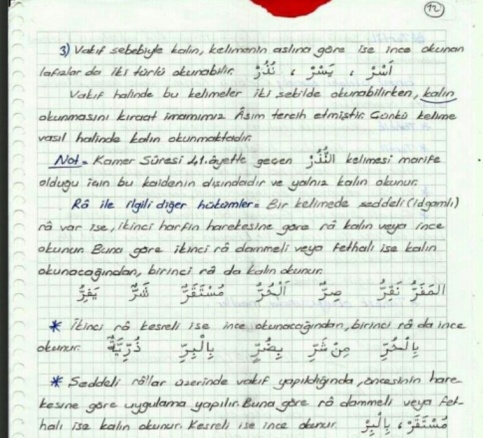 12
3) Vakıf sebebiyle kalın, kelimenin aslına göre ise ince okunan
lafızlar da iki türlü okunabilir. نُذُرْ ، يَسْرْ ، اَسْرْ
Vakıf halinde bu kelimeler iki şekilde okunabilirken, kalın
okunmasını kıraat imamımız Âsım tercih etmiştir. Çünkü kelime
vasıl halinde kalın okunmaktadır.
Not= Kamer Sûresi 41. âyette geçen النُّذُرْ kelimesi marife
olduğu için bu kaidenin dışındadır ve yalnız kalın okunur.
Râ ile ilgili diğer hükümler= Bir kelimede şeddeli (idgamlı)
râ var ise, ikinci harfin harekesine göre râ kalın veya ince
okunur. Buna göre ikinci râ dammeli veya fethalı ise kalın
okunacağından, birinci râ da kalın okunur.
اَلْمَفَرُّ نَقِرُّ صِرٌّ اَلْحُرُّ مُسْتَقَرٌّ شَرٌّ يَفِرُّ
* İkinci râ kesreli ise ince okunacağından, birinci râ da ince
okunur. بِالْحُرِّ مِنْ شَرِّ بِضُرٍّ بِالْبِرِّ ذُرِّيَّةٌ
* Şeddeli râ'lar üzerinde vakıf yapıldığında, öncesinin hare-
kesine göre uygulama yapılır. Buna göre râ dammeli veya fet-
halı ise kalın okunur. Kesreli ise ince okunur. مُسْتَقَرّْ ، بِالْبِرّْ